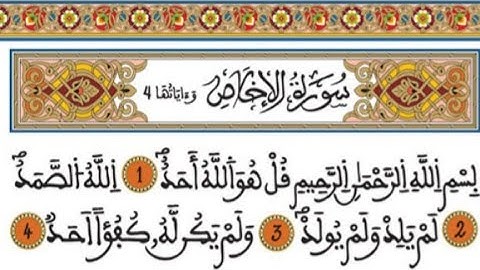 سُورَةُ الإِخْلَاصِ وَءَايَاتُهَا 4
بِسْمِ اِللَّهِ اِلرَّحْمَٰنِ اِلرَّحِيمِ قُلْ هُوَ اَللَّهُ أَحَدٌ 1 اَللَّهُ اُلصَّمَدُ
2 لَمْ يَلِدْ وَلَمْ يُولَدْ 3 وَلَمْ يَكُن لَّهُۥ كُفُؤاً اَحَدٌ 4